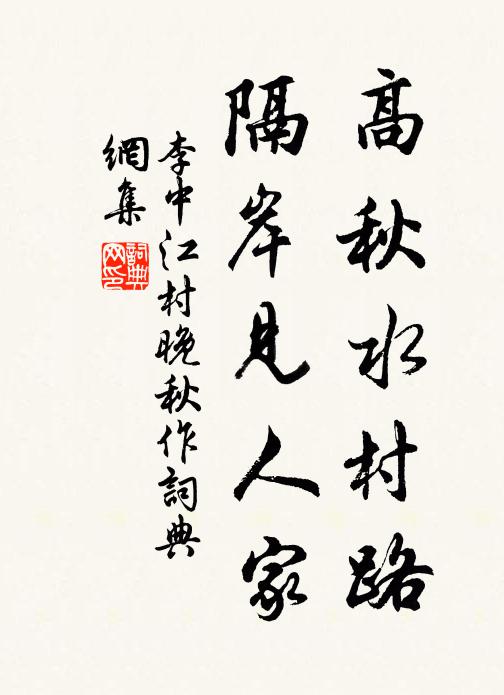 高秋水村路
隔岸見人家
李中江村晚秋作詞典
網集
詞典网印